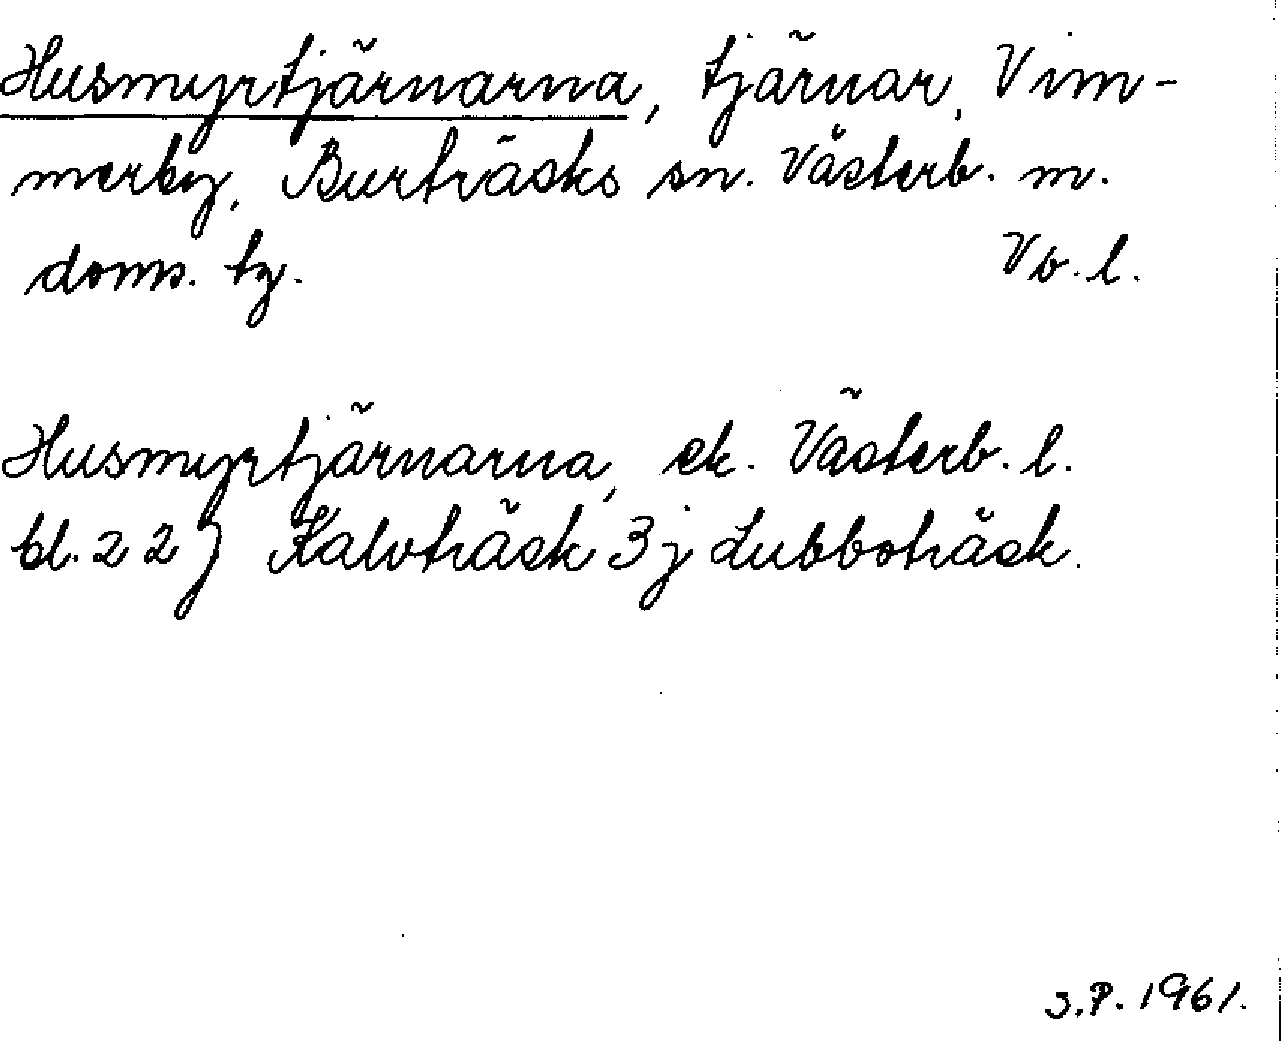 Husmyrtjärnarna, tjärnar, Vim-
merby, Burträsks sn. Västerb. m.
doms. tg. Vb. l.
Husmyrtjärnarna, ek. Västerb. l.
bl. 22 j Kalvträsk 3 j Lubboträsk.
S.P. 1961.